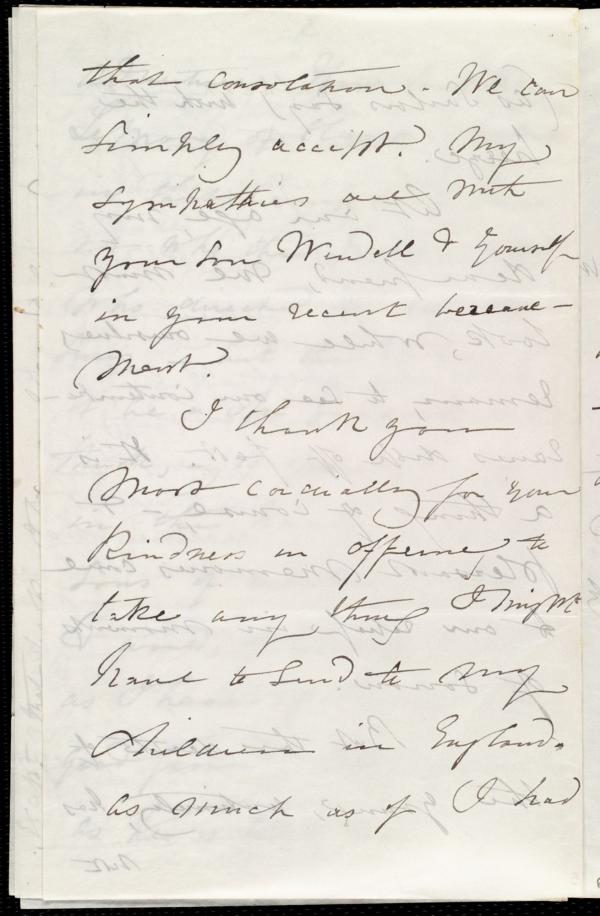 that consolation. We can
simply accept. My
sympathies are with
your son Wendell & yourself
in your recent bereave-
ment.
I thank you
most cordially for your
kindness in offering to
take any thing I might
have to send to my
children in England.
as much as if I had